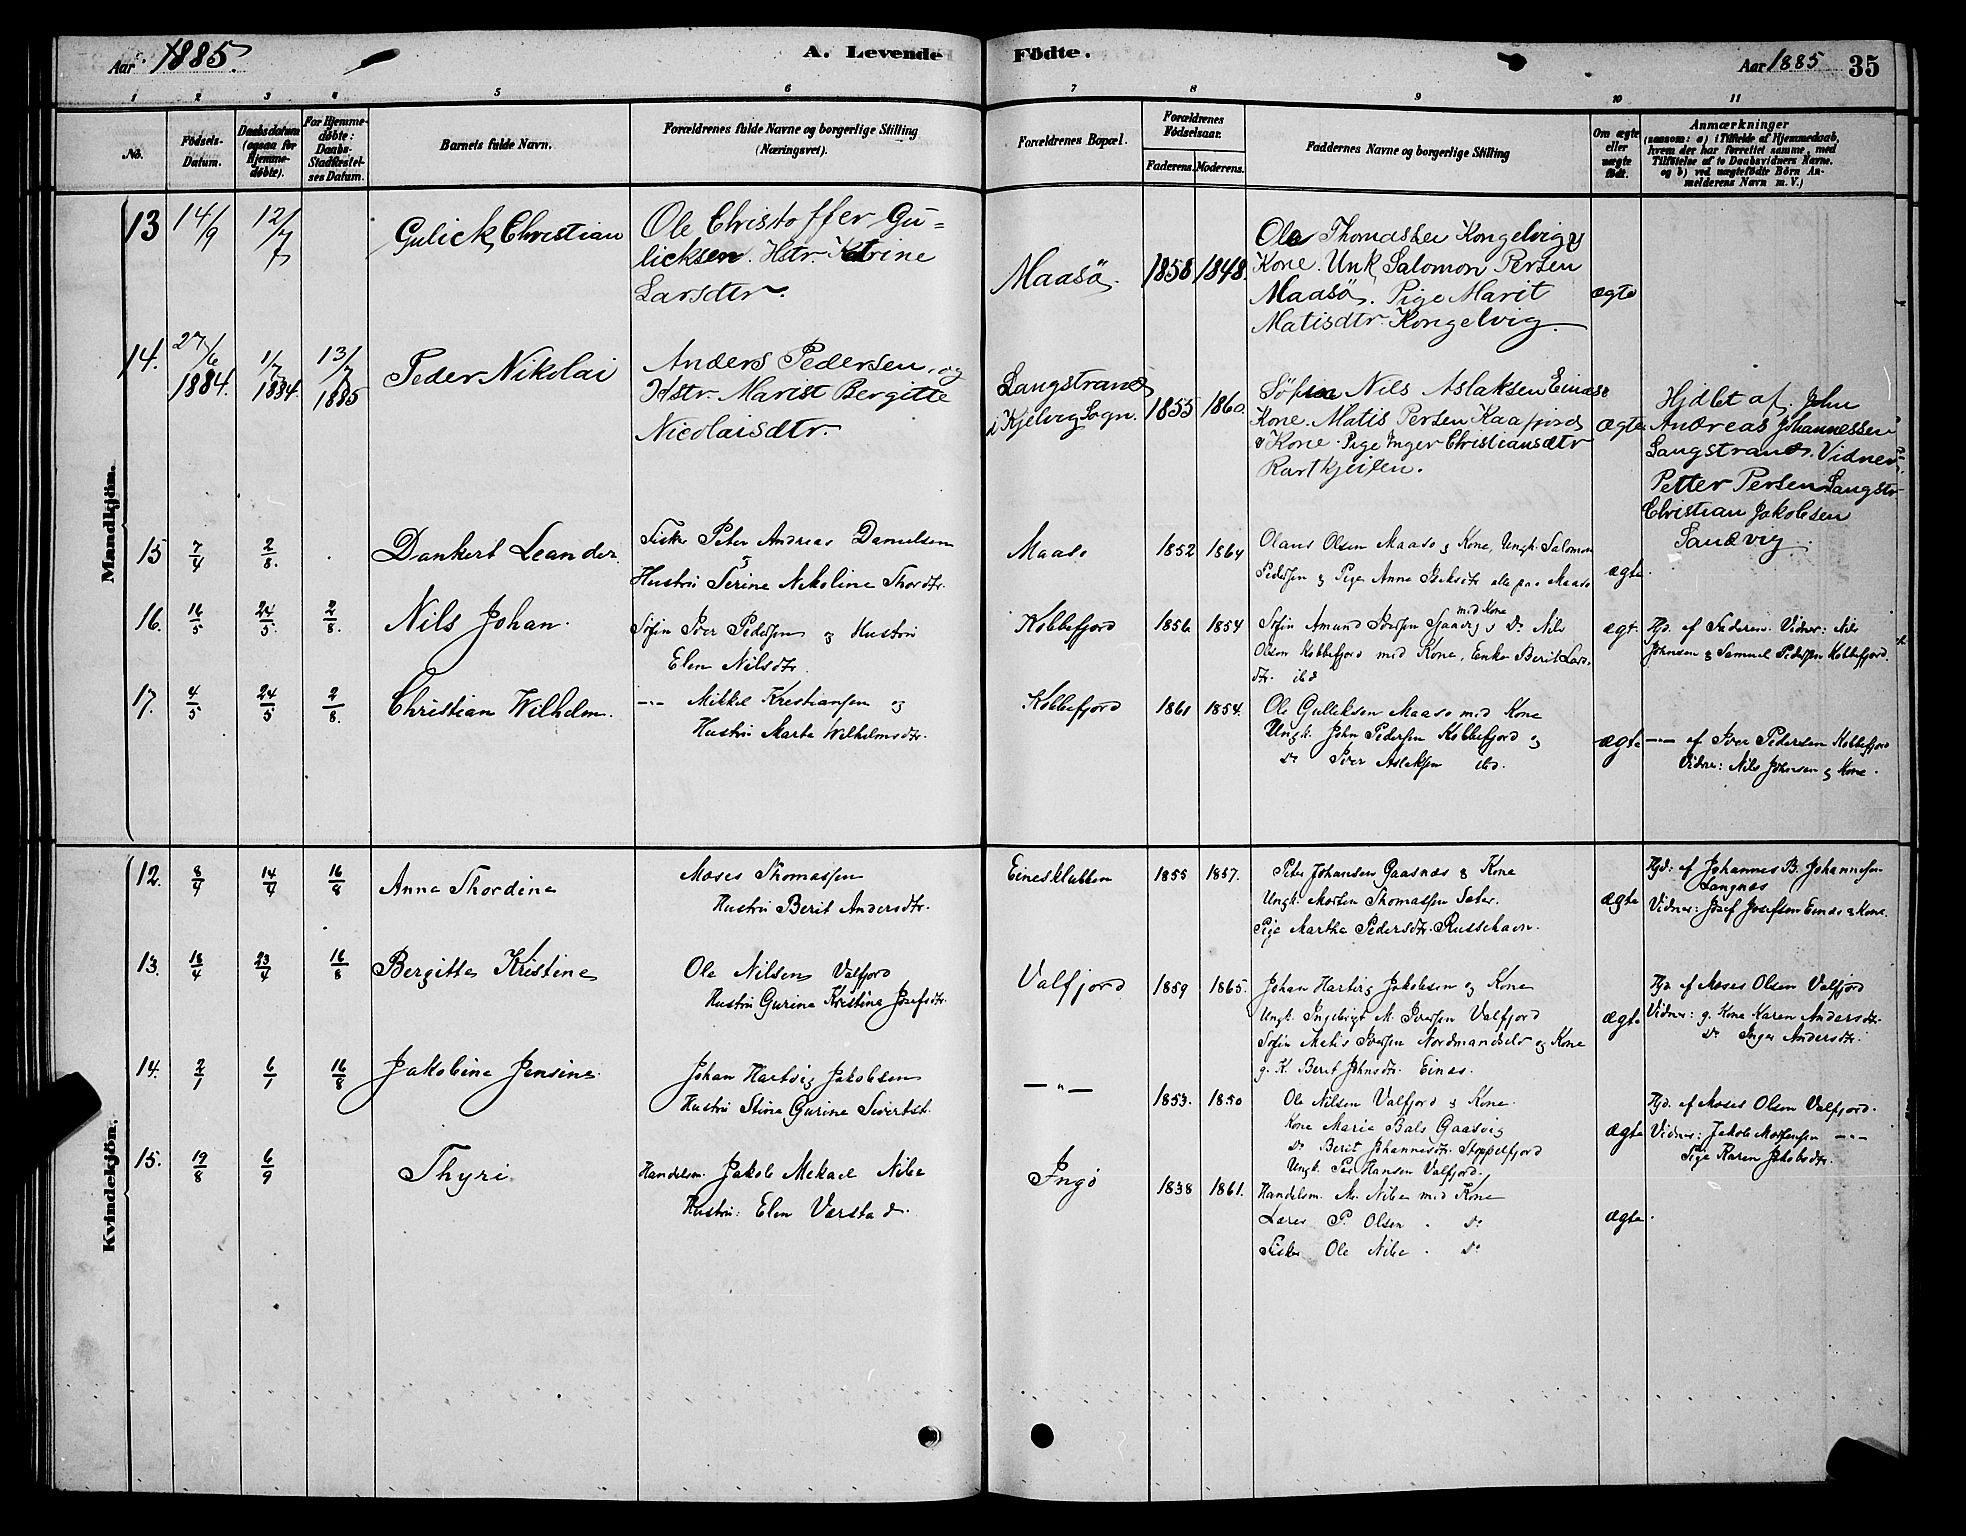 Aar 1885. A. Levende Fødte. Aar 1885 35
1 2 3 4 5 6 7 8 9 10 11
No.
Fødsels-Datum.
Daabsdatum (ogsaa for Hjemmedøbte).
For Hjemmedøbte: Daabs-Stadfæstelses Datum.
Barnets fulde Navn.
Forældrenes fulde Navne og borgerlige Stilling (Næringsvei).
Forældrenes Bopæl.
Forældrenes Fødselsaar.
Faderens. Moderens.
Faddernes Navne og borgerlige Stilling
Om ægte eller uægte født.
Anmærkninger
(saasom: a) i Tilfælde af Hjemmedaab, hvem der har forrettet samme, med Tilføielse af to Daabsvidners Navne. og b) ved uægtefødte Børn Anmelderens Navn m. V.)
Mandkjön.
13 14/9 12/7 Gulick Christian
Ole Christoffer Gu=
licksen. Hstr Katrine
Larsdtr.
Maasö. 1858 1848.
Ole Thomassen Kongelvig &
Kone. Unk. Salomon Persen
Maasö. Pige Marit
Matisdtr. Kongelvig.
ægte
14. 27/6 1884. 1/7 1884. 13/7 1885 Peder Nikolai
Anders Pedersen, og
Hstr. Marist Bergitte
Nicolaisdtr.
Langstrand
i Kjelvig Sogn. 1855 1860.
Nils Aslaksen Einas &
Kone. Matis Persen Kaafjord
& Kone. Pige Inger Christiansdtr
ægte
Hjdbt af John
Andreas Johannessen
Langstrand. Vidner
Petter Persen Langstr
Christian Jakobsen
Sandvig.
15 7/4 2/8. Dankert Leander
Fisker Peter Andreas Danielsen
Hustru Serine Nikoline Thordtr.
Maasö 1852 1864
Olaus Olsen Maasö & Kone, Ungk. Salomon
Pedersen & Pige Anna alle paa Maasö
ægte.
16. 16/5 24/5 2/8. Nils Johan.
Søfin Iver Pedersen og Hustru
Elen Nilsdtr.
Kobbefjord 1856 1854
Søfin Amund Iversen med Kone & Do Nils
Olsen Kobbefjord med Kone, Enke Berit Lars
dtr. ibd
ægt.
Hjd. af Faderen. Vidner: Nils
Johnsen & Samuel Pedersen Kobbefjord.
17. 4/5 24/5 2/8. Christian Wilhelm.
—"— Mikkel Kristiansen og
Hustru Marta Wilhelmsdtr.
Kobbefjord 1861 1854.
Ole Gulleksen Maasö med Kone
Ungk. John Pedersen Kobbefjord og
Do Iver Aslaksen ibd.
ægte
—"— af Iver Pedersen Kobbefjord
Vidner: Nils Johnsen & Kone.
Kvindekjön.
12. 8/4 14/4 16/8 Anna Thordine
Moses Thomassen
Hustru Berit Andersdtr.
Einesklubben 1855 1857.
Peter Johansen Gaasnæs & Kone
Ungk. Morten Thomassen Sater.
Pige Marthe Pedersdtr. Russehavn.
ægte
Hjd: af Johannes B. Johannesen
Langnæs
Vidner: Josef Josefsen Einæs & Kone.
13. 18/4 23/4 16/8 Bergitta Kristine
Ole Nilsen Valfjord
Hustru Gurina Kristine Josefsdtr.
Valfjord 1859 1865.
Johan Hartvig Jakobsen og Kone
Ungk. Ingebrigt M. Iversen Valfjord
Søfin Matis Iversen og Kone
g. K. Berit Johnsdtr. Einæs.
ægte
Hjd. af Moses Olsen Valfjord
Vidner: g. Kone Karen Andersdtr.
Do Inger Andersdtr.
14. 2/1 6/1 16/8 Jakobine Jensine
Johan Hartvig Jakobsen
Hustru Stina Gurine Sivertsdt.
—"— 1853. 1850
Ole Nilsen Valfjord & Kone.
Kone Marie Bals Gaasvig
Do Berit Johannesdtr. Stoppelfjord
Ungk. Per Hansen Valfjord.
ægte
Hjd. af Moses Olsen Valfjord.
Vidner: Jakob Mortensen —"—
Pige Karen Jakobsdtr.
15. 19/8 6/9 Thyri
Handelsm. Jakob Mekael Nibe
Hustru: Elen Varstad.
Ingö 1838 1861.
Handelsm. M. Nibe med Kone
Lærer P. Olsen . Do
Fisker Ole Nibe . Do
ægte.